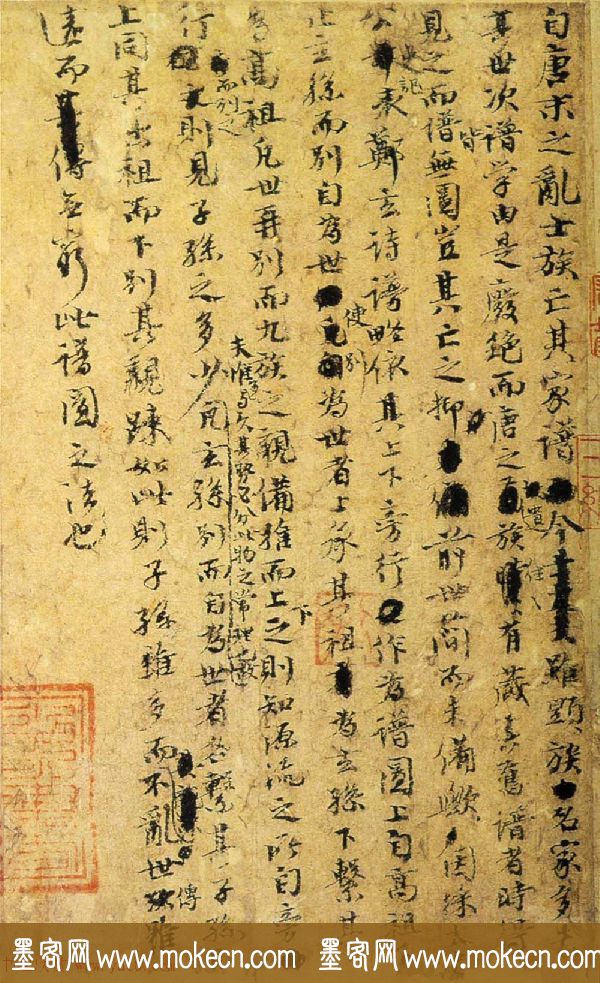 自唐末之亂士族亡其家譜今雖顯族名家多
其世次譜学由是廢絶而唐之遺族往往有藏其舊譜者時得
見之而譜皆無圖豈其亡之抑前世簡而未備歟因採
公史記表鄭玄詩譜略依其上下旁行作為譜圖上自高祖
止玄孫而別自為世使別為世者上承其祖為玄孫下繫其
為高祖凡世再別而九族之親備推而上下之則知源流之所自旁
行而列之則見子孫之多少夫惟多與久其勢必分此物之常理凡玄孫別而自為世者各繫其子孫
上同其出祖而下別其親疎如此則子孫雖多而不亂世傳雖
遠而其傳無窮此譜圖之法也
墨客网 www.mokecn.com 墨客网 www.mokecn.com